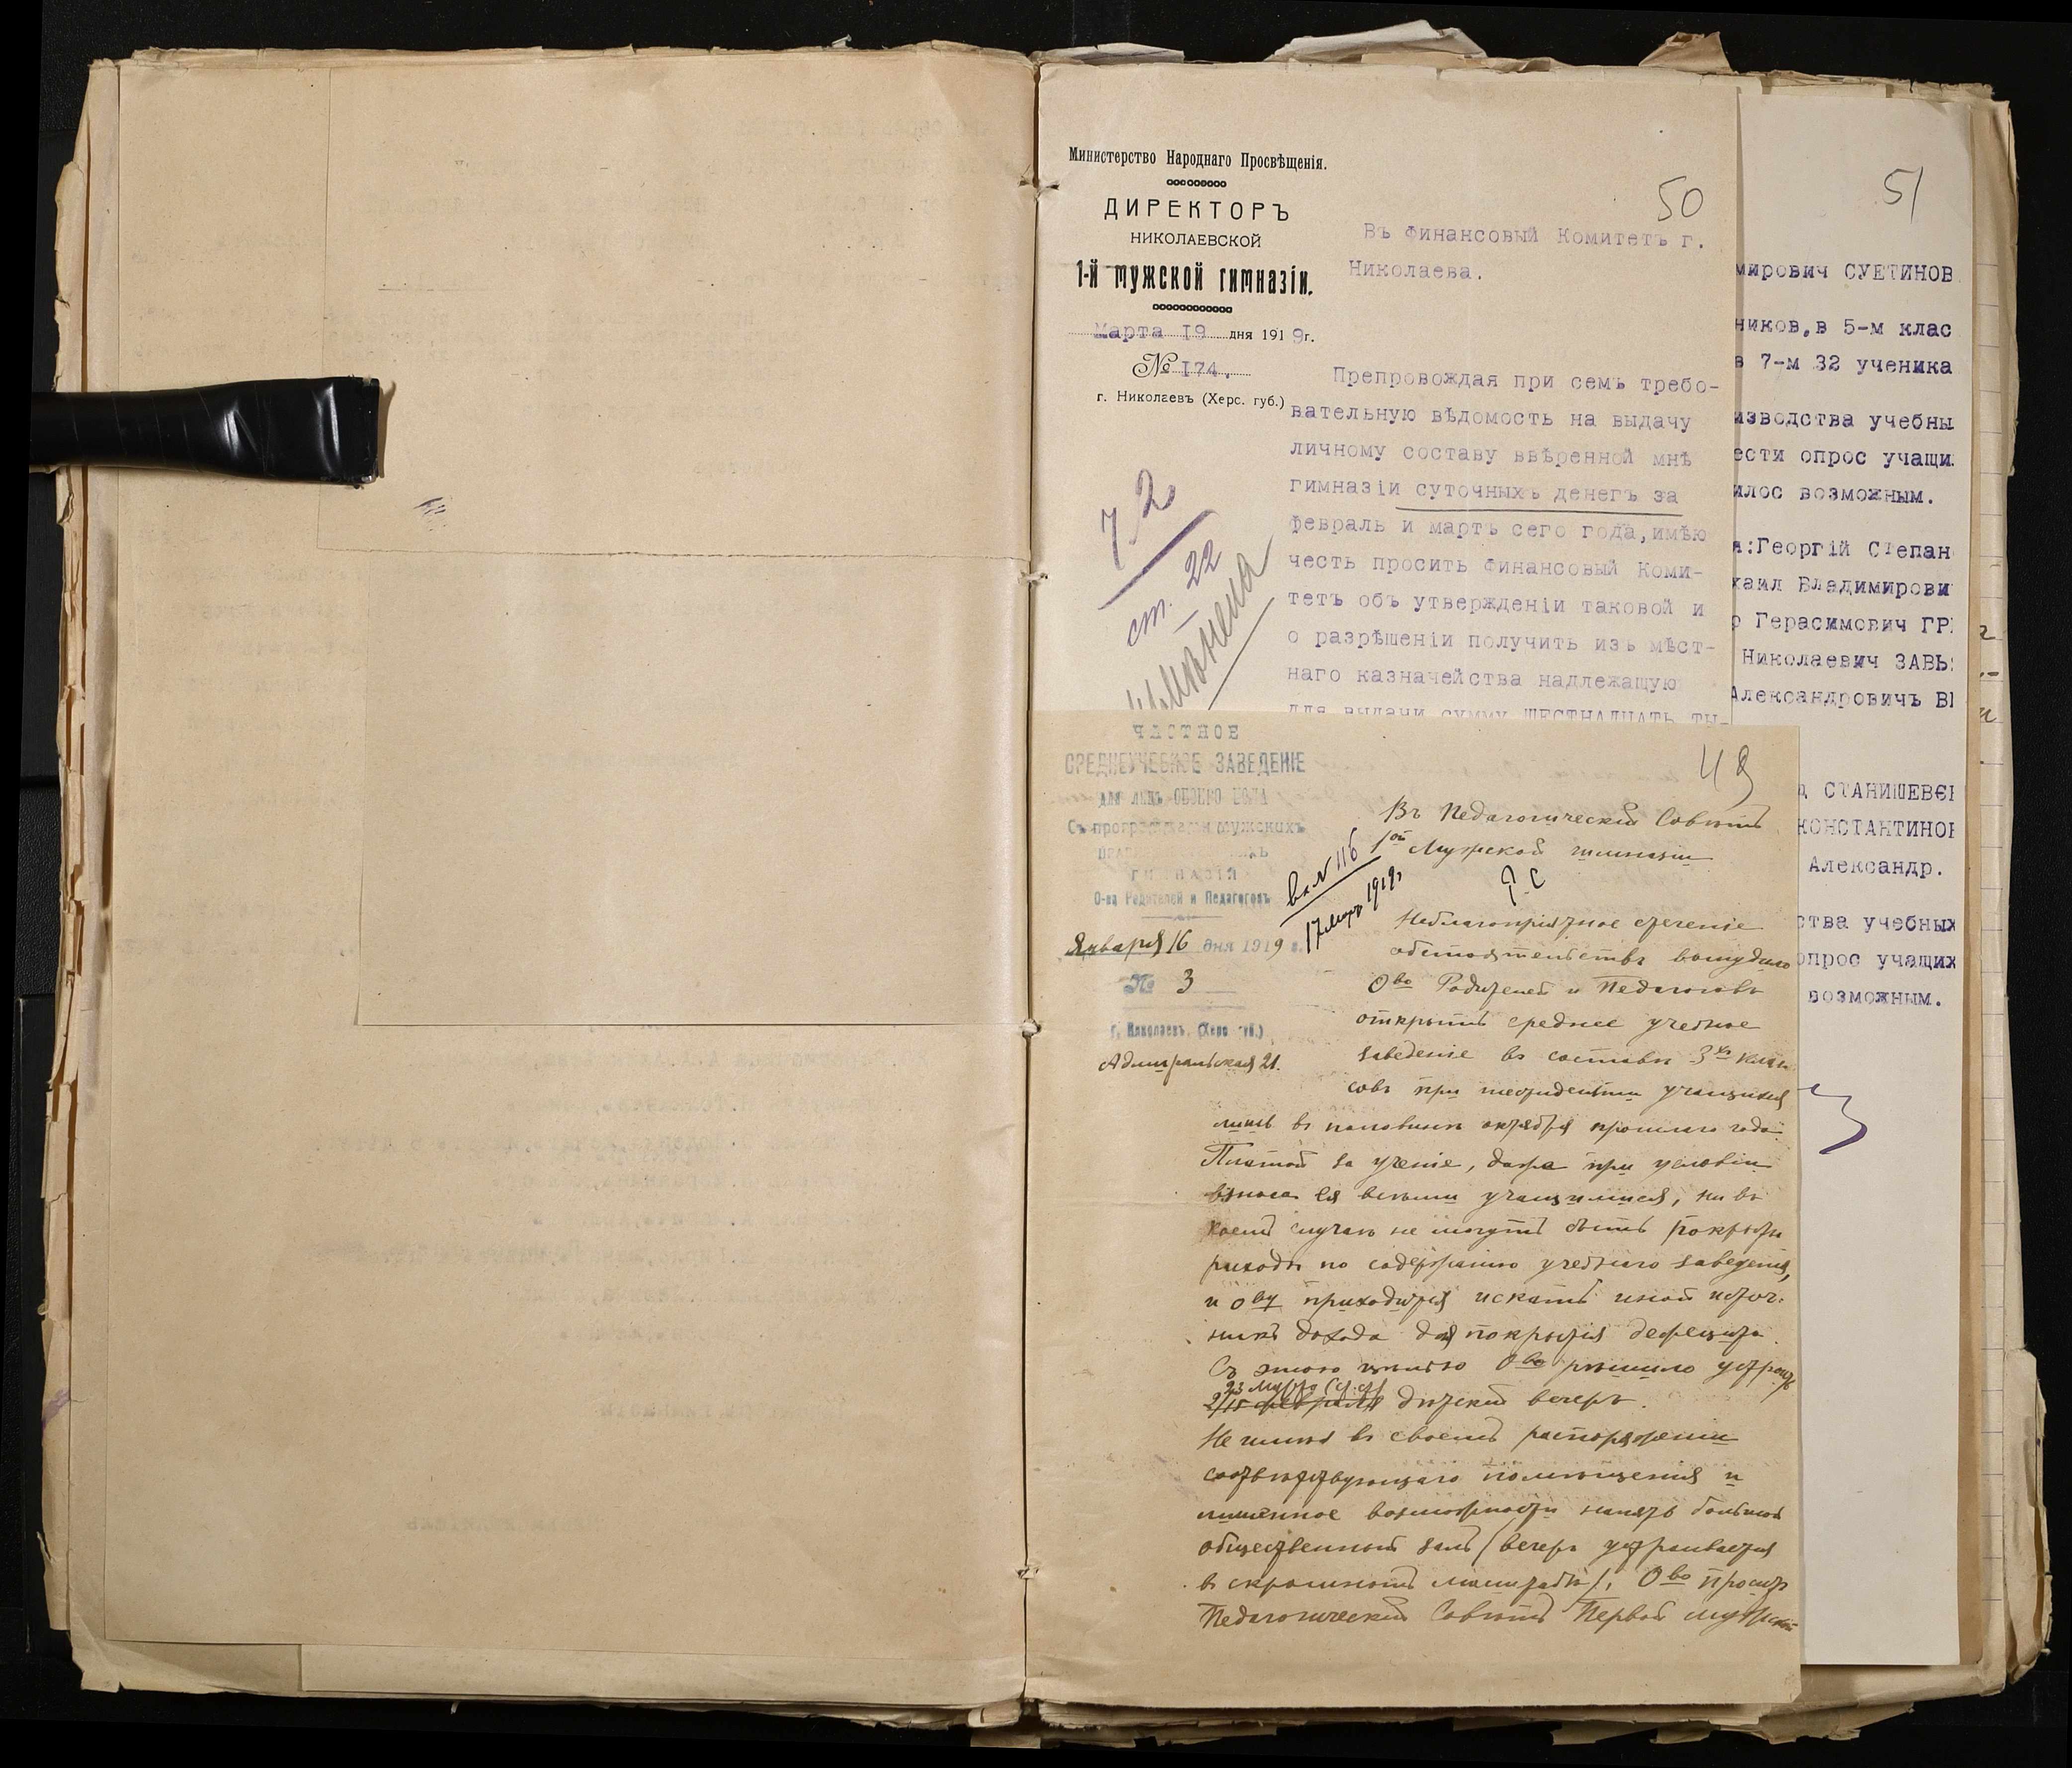 50
Министерство Народнаго Просвѣщенія.
ДИРЕКТОРЪ
НИКОЛАЕВСКОЙ
1-й мужской гимназіи.
Марта 19 дня 1919г.
№ 174.
г. Николаевъ (Херс. губ.)
Въ Финансовый Комитетъ г.
Николаева.
Препровождая при семъ требо-
вательную вѣдомость на выдачу
личному составу ввѣренной мнѣ
гимназіи суточныхъ денегъ за
февраль и мартъ сего года,имѣю
честь просить Финансовый Коми-
тетъ объ утвержденіи таковой и
о разрѣшеніи получить изъ мѣст-
наго казначейства надлежащую
для выдачи сумму ШЕСТНАДЦАТЬ ТЫ-
72
ст. 22
49
ЧАСТНОЕ
СРЕДНЕУЧЕБНОЕ ЗАВЕДЕНІЕ
для лицъ ОБОЕГО ПОЛА
Съ программами мужскихъ
ГИМНАЗІЙ
О-ва Родителей и Педагоговъ
Января 16 дня 1919 г.
№ 3
г. Николаевъ. (Херс. губ.)
Адмиральская 21.
вх № 116
17 мар 1919г
Въ Педагогическій Совѣтъ
1ой Мужской гимназіи
Неблагопріятное стеченіе
обстоятельствъ вынудило
Обво Родителей и Педагоговъ
открыть среднее учебное
заведеніе въ составѣ 3хъ клас-
совъ при учащихся
лишь въ половинѣ октября прошлаго года
Платой за ученіе, даже при условіи
взноса ея всѣми учащимися, ни въ
коемъ случаѣ не могутъ быть покрыты
расходы по содержанію учебнаго заведенія,
и Обву приходится искать иной источ-
никъ дохода для покрытія дефицита.
Съ этою цѣлью Обво рѣшило устроить
23 Марта (ст. ст)
2/15 февраля дѣтскій вечеръ.
Не имѣя въ своемъ распоряженіи
соотвѣтствующаго помѣщенія и
лишенное возможности нанять большой
общественный залъ (вечеръ устраивается
въ скромномъ масштабѣ), Обво проситъ
Педагогическій Совѣтъ Первой Мужской
51
мирович СУЕТИНОВ
ников,в 5-м клас
в 7-м 32 ученика
изводства учебны
ести опрос учащи
илос возможным.
а:Георгій Степан
хаил Владимирови
р Герасимович ГР
Николаевич ЗАВЬ
Александровичъ В
СТАНИШЕВС
КОНСТАНТИНО
Александр.
ства учебных
опрос учащих
возможным.